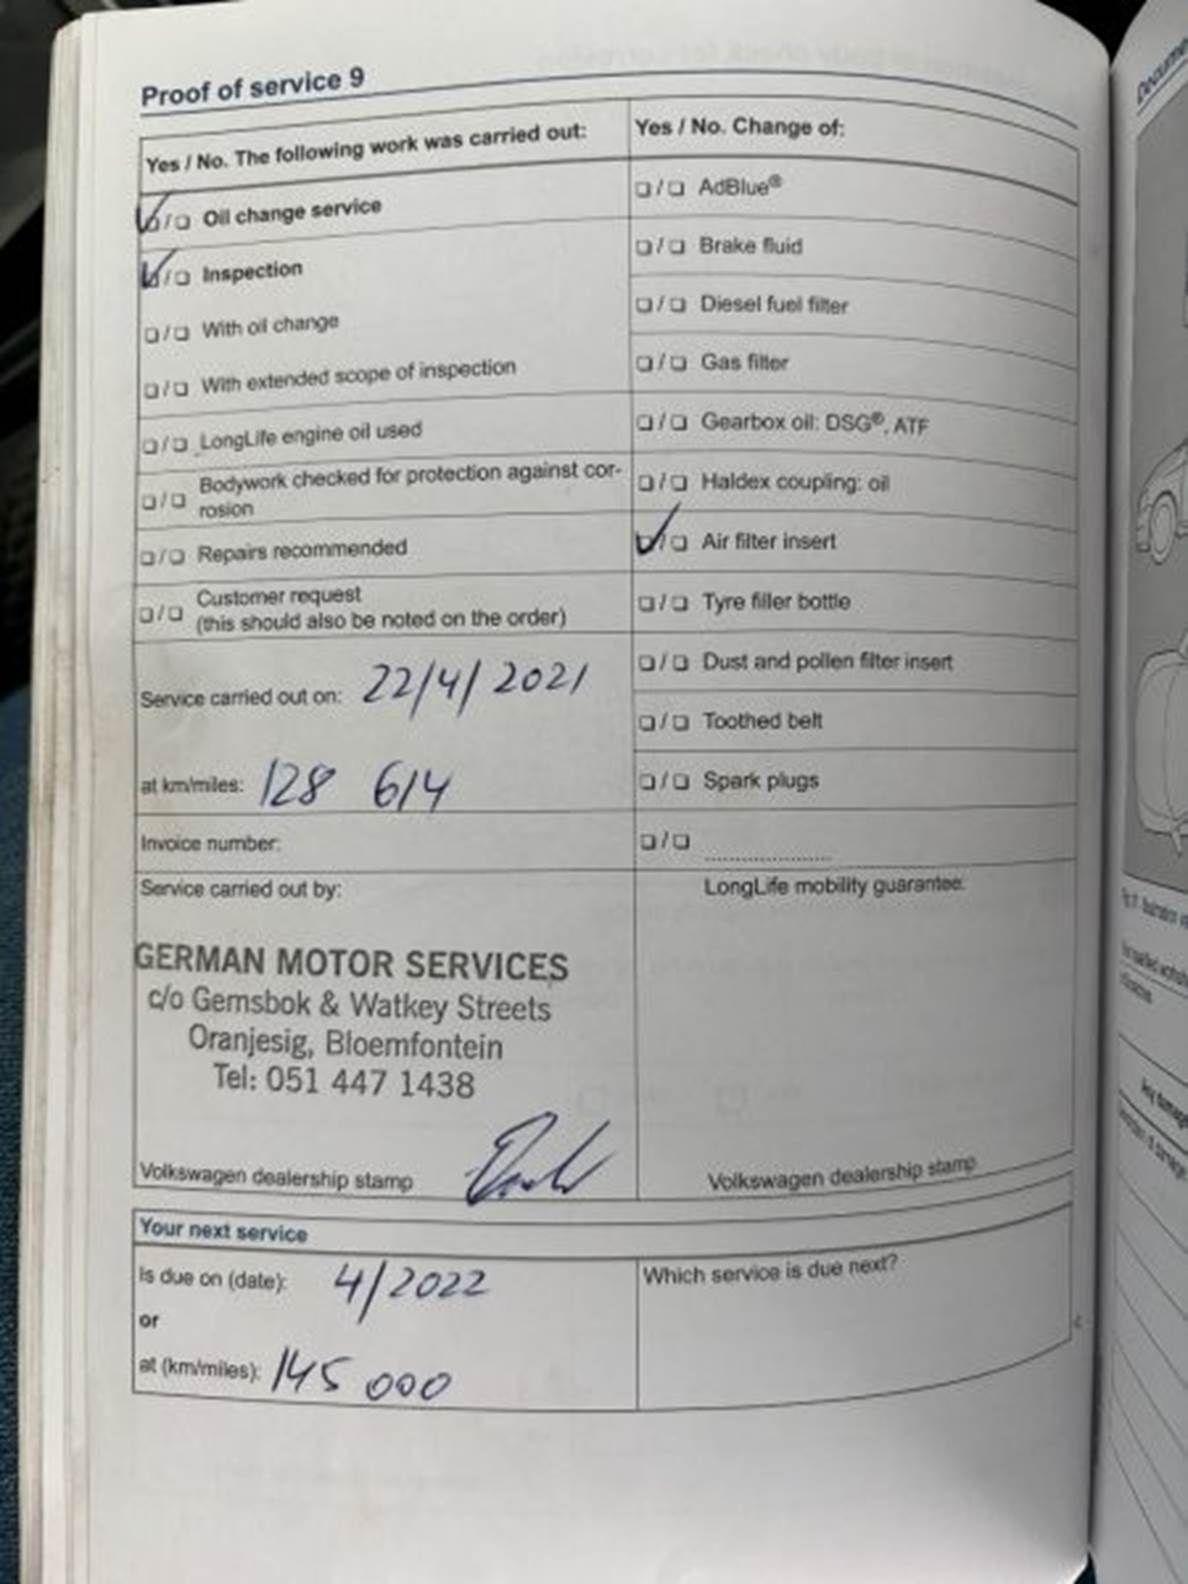 Proof of service 9
Yes / No. The following work was carried out:
❏/❏ Oil change service
❏/❏ Inspection
❏/❏ With oil change
❏/❏ With extended scope of inspection
❏/❏ LongLife engine oil used
❏/❏ Bodywork checked for protection against cor-
rosion
❏/❏ Repairs recommended
❏/❏ Customer request
(this should also be noted on the order)
Service carried out on: 22/4/2021
at km/miles: 128 614
Invoice number:
Service carried out by:
GERMAN MOTOR SERVICES
c/o Gemsbok & Watkey Streets
Oranjesig, Bloemfontein
Tel: 051 447 1438
Volkswagen dealership stamp
Yes / No. Change of:
❏/❏ AdBlue®
❏/❏ Brake fluid
❏/❏ Diesel fuel filter
❏/❏ Gas filter
❏/❏ Gearbox oil: DSG®, ATF
❏/❏ Haldex coupling: oil
❏/❏ Air filter insert
❏/❏ Tyre filler bottle
❏/❏ Dust and pollen filter insert
❏/❏ Toothed belt
❏/❏ Spark plugs
❏/❏ ....................
LongLife mobility guarantee:
Volkswagen dealership stamp
Your next service
Is due on (date): 4/2022
or
at (km/miles): 145 000
Which service is due next?